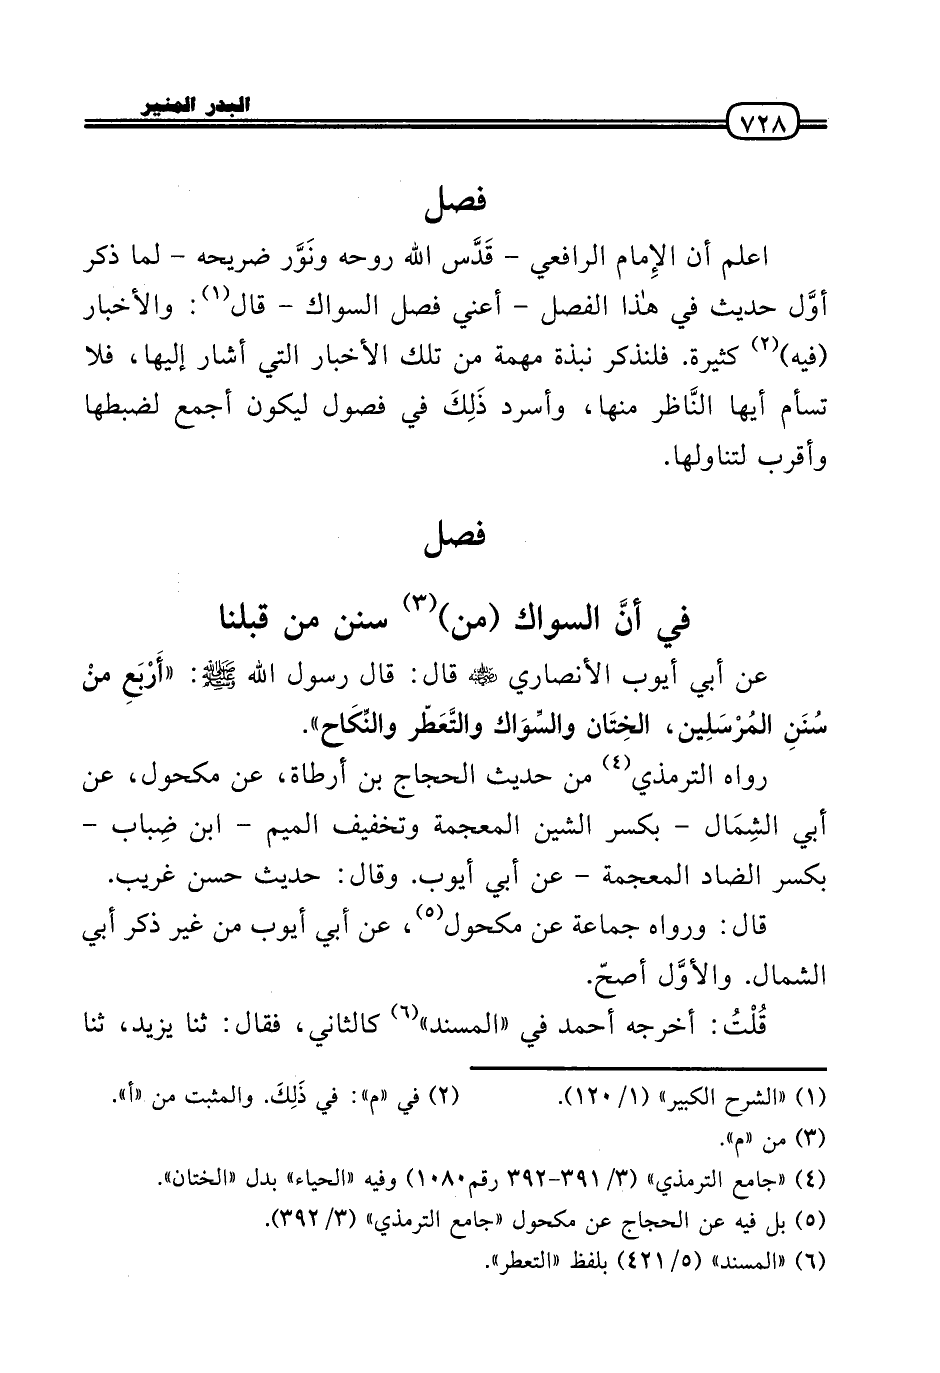 البدر المنير
٧٢٨
فصل
اعلم أن الإمام الرافعي - قَدَّس الله روحه ونَوَّر ضريحه - لما ذكر
أوَّل حديث في هذا الفصل - أعني فصل السواك - قال(١): والأخبار
(فيه)(٢) كثيرة. فلنذكر نبذة مهمة من تلك الأخبار التي أشار إليها، فلا
تسأم أيها النَّاظر منها، وأسرد ذَلِكَ في فصول ليكون أجمع لضبطها
وأقرب لتناولها.
فصل
في أنَّ السواك (من)(٣) سنن من قبلنا
عن أبي أيوب الأنصاري ﵁ قال: قال رسول الله ﷺ: «أَرْبَعِ منْ
سُنَنِ المُرْسَلِين، الخِتَان والسِّوَاك والتَّعَطّر والنِّكَاح».
رواه الترمذي(٤) من حديث الحجاج بن أرطاة، عن مكحول، عن
أبي الشِمَال - بكسر الشين المعجمة وتخفيف الميم - ابن ضِباب -
بكسر الضاد المعجمة - عن أبي أيوب. وقال: حديث حسن غريب.
قال: ورواه جماعة عن مكحول(٥)، عن أبي أيوب من غير ذكر أبي
الشمال. والأوَّل أصحّ.
قُلْتُ: أخرجه أحمد في «المسند»(٦) كالثاني، فقال: ثنا يزيد، ثنا
(١) «الشرح الكبير» (١/ ١٢٠). (٢) في «م»: في ذَلِكَ. والمثبت من «أ».
(٣) من «م».
(٤) «جامع الترمذي» (٣/ ٣٩١-٣٩٢ رقم١٠٨٠) وفيه «الحياء» بدل «الختان».
(٥) بل فيه عن الحجاج عن مكحول «جامع الترمذي» (٣/ ٣٩٢).
(٦) «المسند» (٥/ ٤٢١) بلفظ «التعطر».